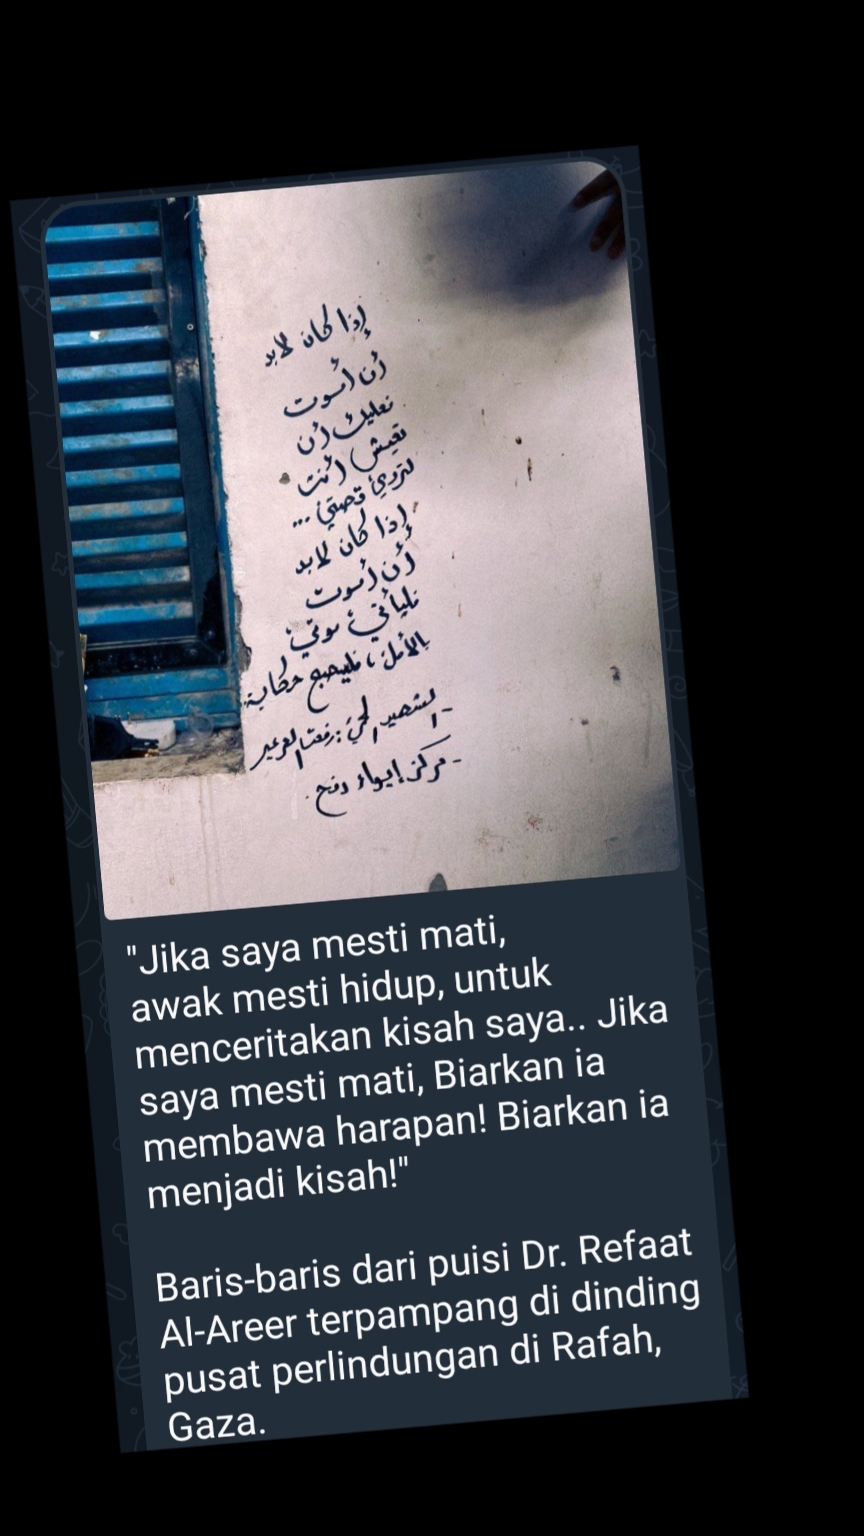 إذا كان لابد
أن أموت
فعليك أن
تعيش أنت
لتروي قصتي ...
إذا كان لابد
أن أموت
فليأتي موتي
بالأمل، فليصبح حكاية.
- الشهيد الحي: رفعت العرعير
- مركز إيواء رفح.
"Jika saya mesti mati,
awak mesti hidup, untuk
menceritakan kisah saya.. Jika
saya mesti mati, Biarkan ia
membawa harapan! Biarkan ia
menjadi kisah!"
Baris-baris dari puisi Dr. Refaat
Al-Areer terpampang di dinding
pusat perlindungan di Rafah,
Gaza.